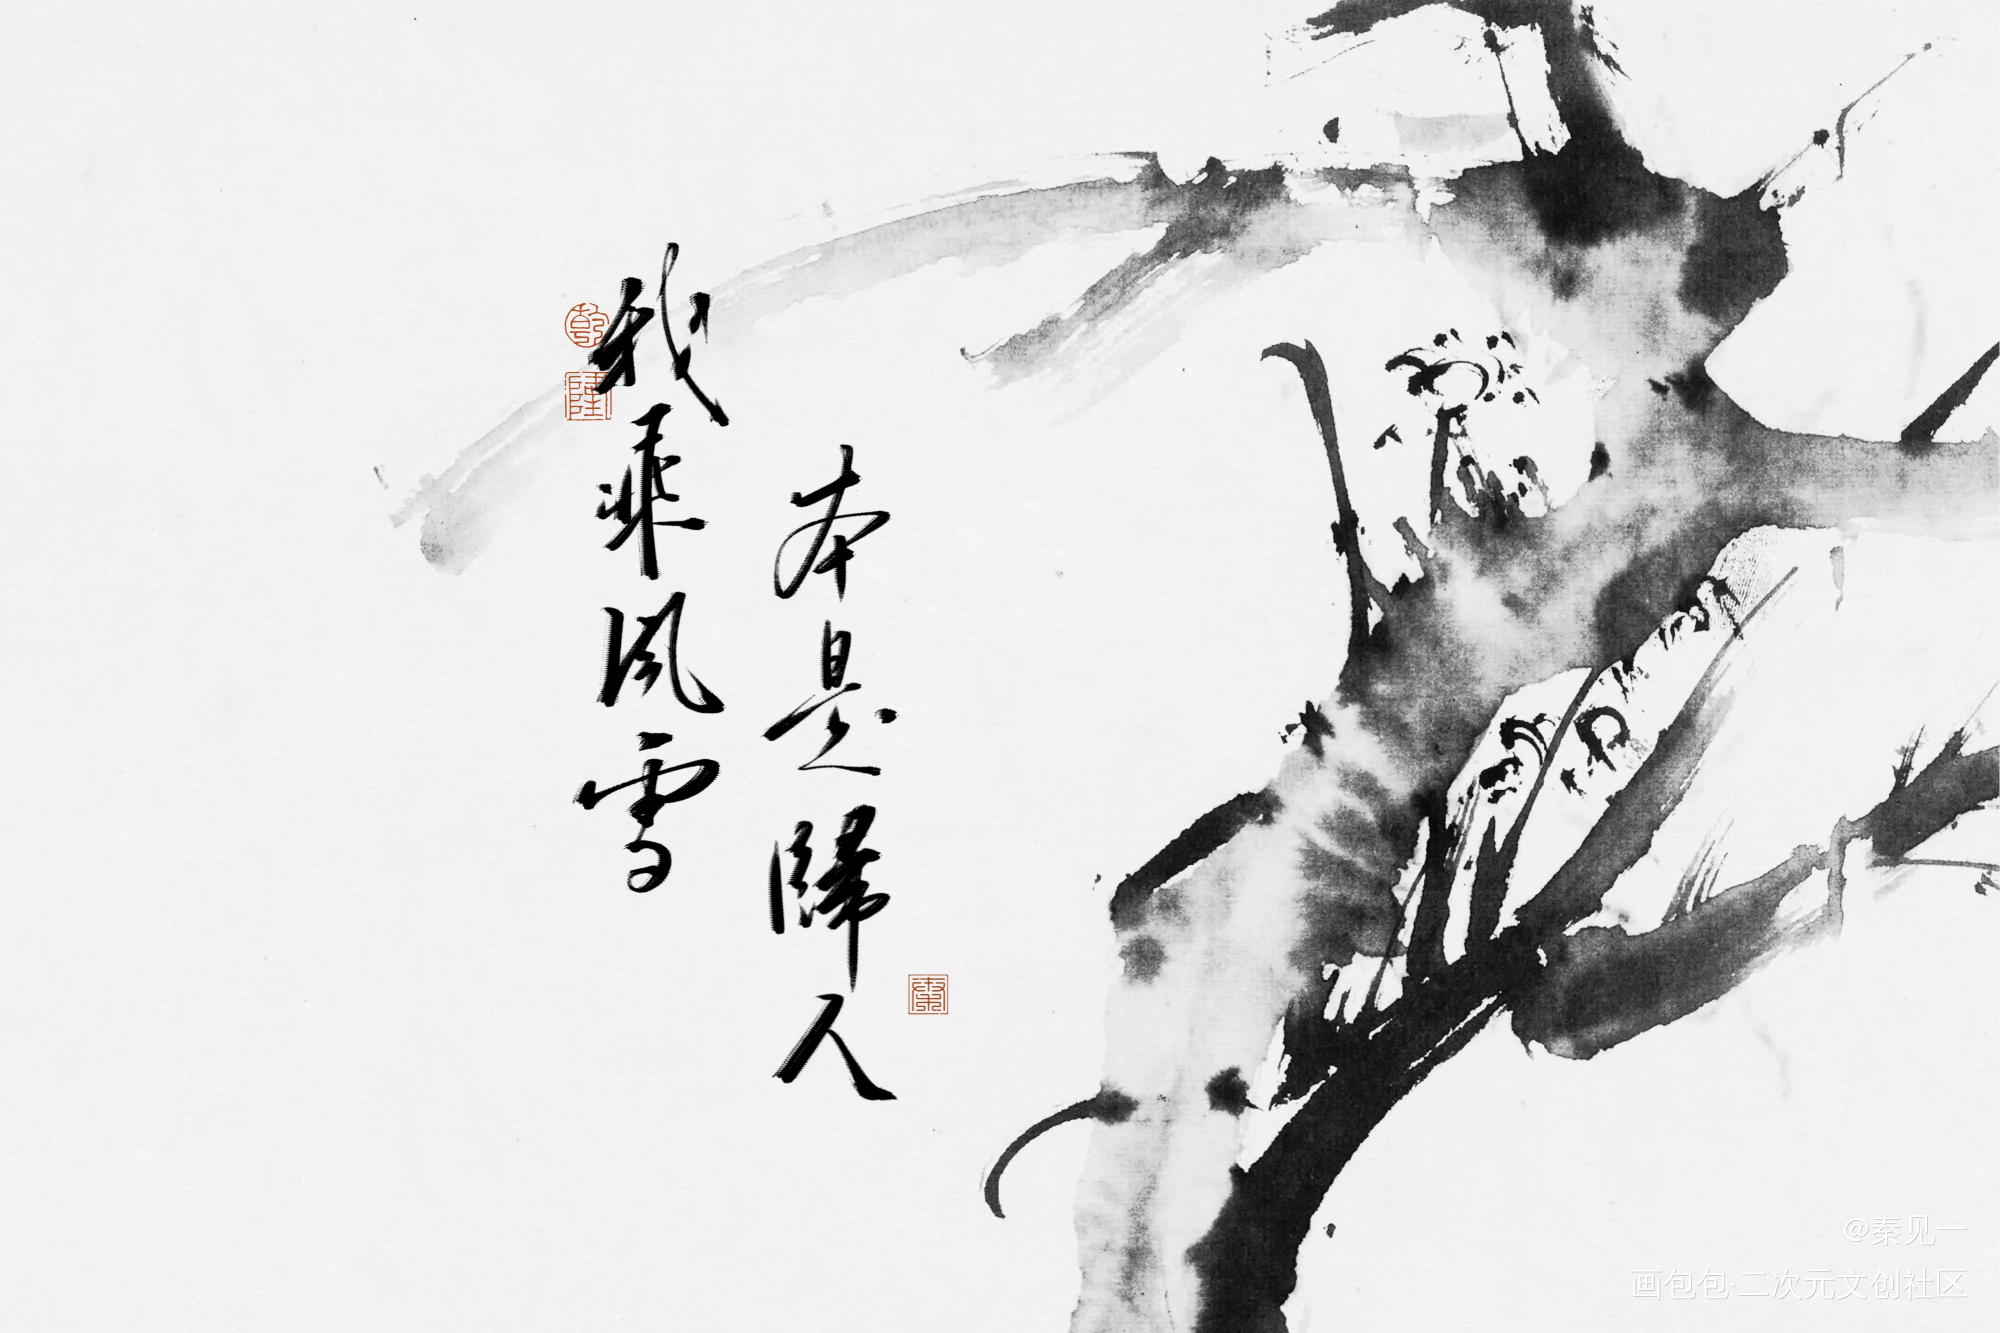 我乘風雪
本是歸人
乾
隆
秦
@秦见一
画包包·二次元文创社区